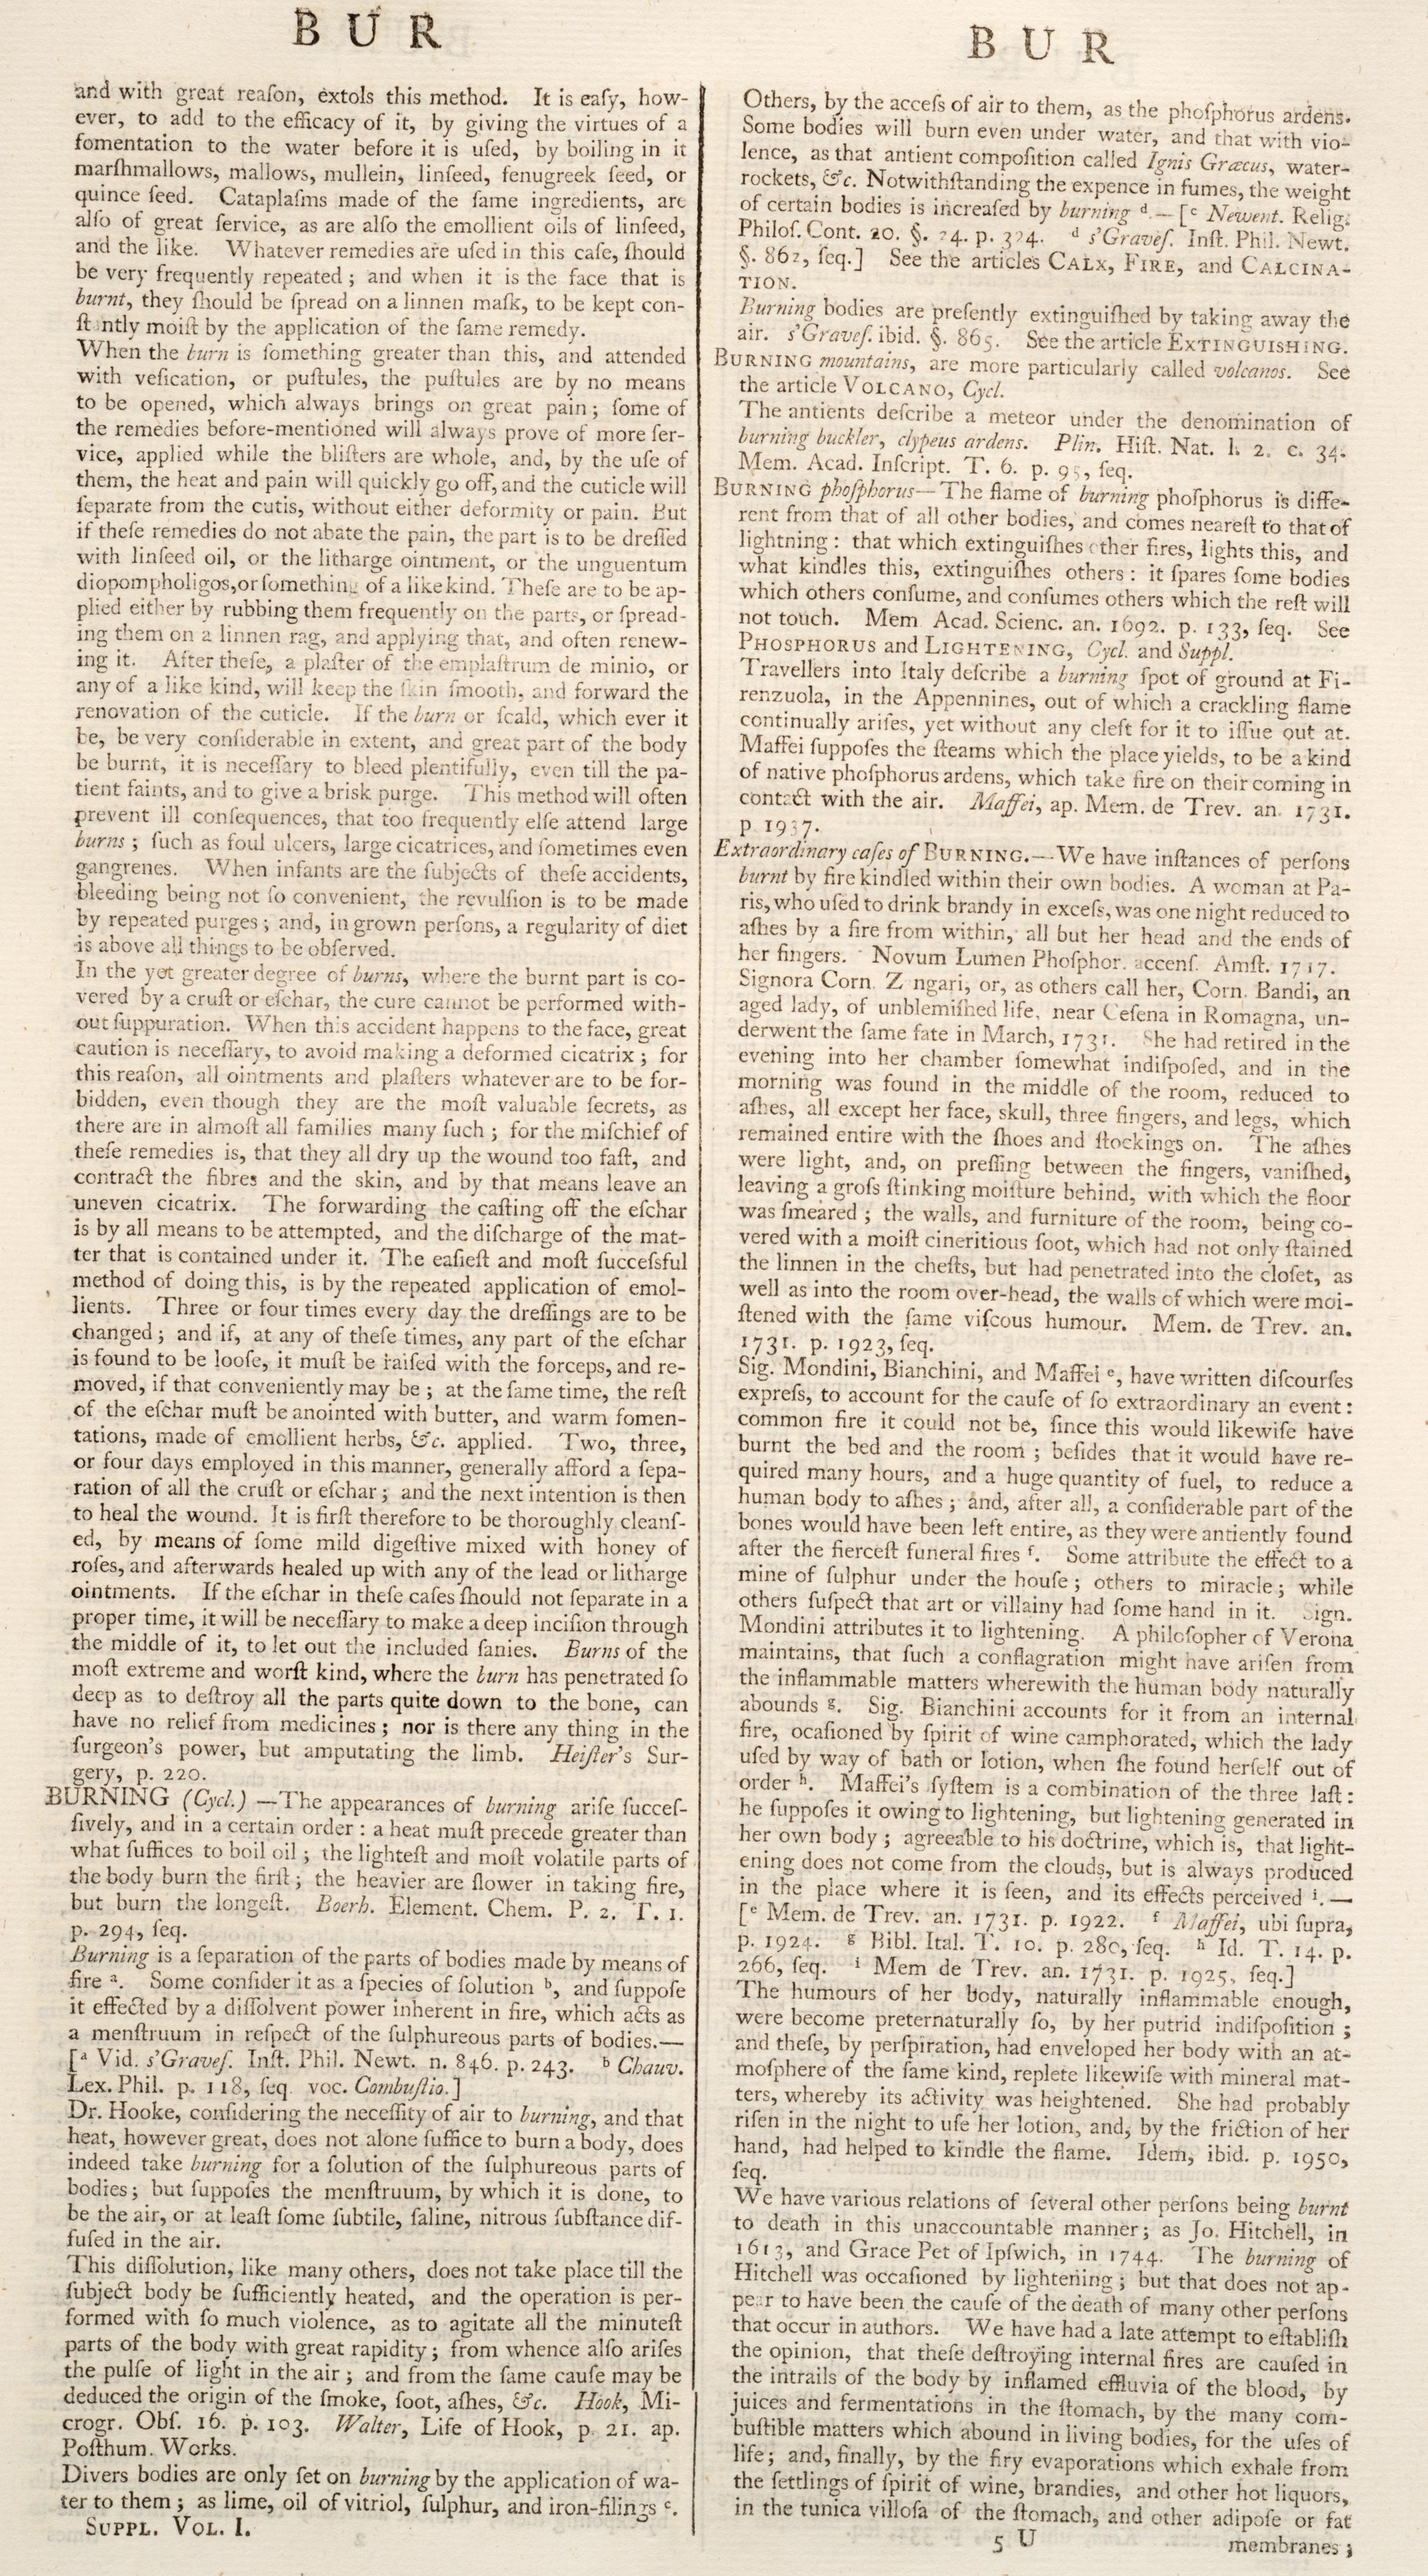 B U R
and with great reaſon, extols this method. It is eaſy, how-
ever, to add to the efficacy of it, by giving the virtues of a
fomentation to the water before it is uſed, by boiling in it
marſhmallows, mallows, mullein, linſeed, fenugreek ſeed, or
quince ſeed. Cataplaſms made of the ſame ingredients, are
alſo of great ſervice, as are alſo the emollient oils of linſeed,
and the like. Whatever remedies are uſed in this caſe, ſhould
be very frequently repeated; and when it is the face that is
burnt, they ſhould be ſpread on a linnen maſk, to be kept con-
ſtantly moiſt by the application of the ſame remedy.
When the burn is ſomething greater than this, and attended
with veſication, or puſtules, the puſtules are by no means
to be opened, which always brings on great pain; ſome of
the remedies before-mentioned will always prove of more ſer-
vice, applied while the bliſters are whole, and, by the uſe of
them, the heat and pain will quickly go off, and the cuticle will
ſeparate from the cutis, without either deformity or pain. But
if theſe remedies do not abate the pain, the part is to be dreſſed
with linſeed oil, or the litharge ointment, or the unguentum
diopompholigos, or ſomething of a like kind. Theſe are to be ap-
plied either by rubbing them frequently on the parts, or ſpread-
ing them on a linnen rag, and applying that, and often renew-
ing it. After theſe, a plaſter of the emplaſtrum de minio, or
any of a like kind, will keep the ſkin ſmooth, and forward the
renovation of the cuticle. If the burn or ſcald, which ever it
be, be very conſiderable in extent, and great part of the body
be burnt, it is neceſſary to bleed plentifully, even till the pa-
tient faints, and to give a briſk purge. This method will often
prevent ill conſequences, that too frequently elſe attend large
burns; ſuch as foul ulcers, large cicatrices, and ſometimes even
gangrenes. When infants are the ſubjects of theſe accidents,
bleeding being not ſo convenient, the revulſion is to be made
by repeated purges; and, in grown perſons, a regularity of diet
is above all things to be obſerved.
In the yet greater degree of burns, where the burnt part is co-
vered by a cruſt or eſchar, the cure cannot be performed with-
out ſuppuration. When this accident happens to the face, great
caution is neceſſary, to avoid making a deformed cicatrix; for
this reaſon, all ointments and plaſters whatever are to be for-
bidden, even though they are the moſt valuable ſecrets, as
there are in almoſt all families many ſuch; for the miſchief of
theſe remedies is, that they all dry up the wound too faſt, and
contract the fibres and the skin, and by that means leave an
uneven cicatrix. The forwarding the caſting off the eſchar
is by all means to be attempted, and the diſcharge of the mat-
ter that is contained under it. The eaſieſt and moſt ſucceſsful
method of doing this, is by the repeated application of emol-
lients. Three or four times every day the dreſſings are to be
changed; and if, at any of theſe times, any part of the eſchar
is found to be looſe, it muſt be raiſed with the forceps, and re-
moved, if that conveniently may be; at the ſame time, the reſt
of the eſchar muſt be anointed with butter, and warm fomen-
tations, made of emollient herbs, &c. applied. Two, three,
or four days employed in this manner, generally afford a ſepa-
ration of all the cruſt or eſchar; and the next intention is then
to heal the wound. It is firſt therefore to be thoroughly cleanſ-
ed, by means of ſome mild digeſtive mixed with honey of
roſes, and afterwards healed up with any of the lead or litharge
ointments. If the eſchar in theſe caſes ſhould not ſeparate in a
proper time, it will be neceſſary to make a deep inciſion through
the middle of it, to let out the included ſanies. Burns of the
moſt extreme and worſt kind, where the burn has penetrated ſo
deep as to deſtroy all the parts quite down to the bone, can
have no relief from medicines; nor is there any thing in the
ſurgeon's power, but amputating the limb. Heiſter's Sur-
gery, p. 220.
BURNING (Cycl.) —The appearances of burning ariſe ſucceſ-
ſively, and in a certain order: a heat muſt precede greater than
what ſuffices to boil oil; the lighteſt and moſt volatile parts of
the body burn the firſt; the heavier are ſlower in taking fire,
but burn the longeſt. Boerh. Element. Chem. P. 2. T. 1.
p. 294, ſeq.
Burning is a ſeparation of the parts of bodies made by means of
fire ª. Some conſider it as a ſpecies of ſolution ᵇ, and ſuppoſe
it effected by a diſſolvent power inherent in fire, which acts as
a menſtruum in reſpect of the ſulphureous parts of bodies.—
[ª Vid. s'Graveſ. Inſt. Phil. Newt. n. 846. p. 243. ᵇ Chauv.
Lex. Phil. p. 118, ſeq. voc. Combuſtio.]
Dr. Hooke, conſidering the neceſſity of air to burning, and that
heat, however great, does not alone ſuffice to burn a body, does
indeed take burning for a ſolution of the ſulphureous parts of
bodies; but ſuppoſes the menſtruum, by which it is done, to
be the air, or at leaſt ſome ſubtile, ſaline, nitrous ſubſtance dif-
fuſed in the air.
This diſſolution, like many others, does not take place till the
ſubject body be ſufficiently heated, and the operation is per-
formed with ſo much violence, as to agitate all the minuteſt
parts of the body with great rapidity; from whence alſo ariſes
the pulſe of light in the air; and from the ſame cauſe may be
deduced the origin of the ſmoke, ſoot, aſhes, &c. Hook, Mi-
crogr. Obſ. 16. p. 103. Walter, Life of Hook, p. 21. ap.
Poſthum. Works.
Divers bodies are only ſet on burning by the application of wa-
ter to them; as lime, oil of vitriol, ſulphur, and iron-filings ᶜ.
SUPPL. VOL. I.
B U R
Others, by the acceſs of air to them, as the phoſphorus ardens.
Some bodies will burn even under water, and that with vio-
lence, as that antient compoſition called Ignis Græcus, water-
rockets, &c. Notwithſtanding the expence in fumes, the weight
of certain bodies is increaſed by burning ᵈ.—[ᶜ Newent. Relig.
Philoſ. Cont. 20. §. 24. p. 324. ᵈ s'Graveſ. Inſt. Phil. Newt.
§. 862, ſeq.] See the articles CALX, FIRE, and CALCINA-
TION.
Burning bodies are preſently extinguiſhed by taking away the
air. s'Graveſ. ibid. §. 865. See the article EXTINGUISHING.
BURNING mountains, are more particularly called volcanos. See
the article VOLCANO, Cycl.
The antients deſcribe a meteor under the denomination of
burning buckler, clypeus ardens. Plin. Hiſt. Nat. l. 2. c. 34.
Mem. Acad. Inſcript. T. 6. p. 95, ſeq.
BURNING phoſphorus—The flame of burning phoſphorus is diffe-
rent from that of all other bodies, and comes neareſt to that of
lightning: that which extinguiſhes other fires, lights this, and
what kindles this, extinguiſhes others: it ſpares ſome bodies
which others conſume, and conſumes others which the reſt will
not touch. Mem. Acad. Scienc. an. 1692. p. 133, ſeq. See
PHOSPHORUS and LIGHTENING, Cycl. and Suppl.
Travellers into Italy deſcribe a burning ſpot of ground at Fi-
renzuola, in the Appennines, out of which a crackling flame
continually ariſes, yet without any cleft for it to iſſue out at.
Maffei ſuppoſes the ſteams which the place yields, to be a kind
of native phoſphorus ardens, which take fire on their coming in
contact with the air. Maffei, ap. Mem. de Trev. an. 1731.
p. 1937.
Extraordinary caſes of BURNING.—We have inſtances of perſons
burnt by fire kindled within their own bodies. A woman at Pa-
ris, who uſed to drink brandy in exceſs, was one night reduced to
aſhes by a fire from within, all but her head and the ends of
her fingers. Novum Lumen Phoſphor. accenſ. Amſt. 1717.
Signora Corn. Zngari, or, as others call her, Corn. Bandi, an
aged lady, of unblemiſhed life, near Ceſena in Romagna, un-
derwent the ſame fate in March, 1731. She had retired in the
evening into her chamber ſomewhat indiſpoſed, and in the
morning was found in the middle of the room, reduced to
aſhes, all except her face, skull, three fingers, and legs, which
remained entire with the ſhoes and ſtockings on. The aſhes
were light, and, on preſſing between the fingers, vaniſhed,
leaving a groſs ſtinking moiſture behind, with which the floor
was ſmeared; the walls, and furniture of the room, being co-
vered with a moiſt cineritious ſoot, which had not only ſtained
the linnen in the cheſts, but had penetrated into the cloſet, as
well as into the room over-head, the walls of which were moi-
ſtened with the ſame viſcous humour. Mem. de Trev. an.
1731. p. 1923, ſeq.
Sig. Mondini, Bianchini, and Maffei ᵉ, have written diſcourſes
expreſs, to account for the cauſe of ſo extraordinary an event:
common fire it could not be, ſince this would likewiſe have
burnt the bed and the room; beſides that it would have re-
quired many hours, and a huge quantity of fuel, to reduce a
human body to aſhes; and, after all, a conſiderable part of the
bones would have been left entire, as they were antiently found
after the fierceſt funeral fires ᶠ. Some attribute the effect to a
mine of ſulphur under the houſe; others to miracle; while
others ſuſpect that art or villainy had ſome hand in it. Sign.
Mondini attributes it to lightening. A philoſopher of Verona
maintains, that ſuch a conflagration might have ariſen from
the inflammable matters wherewith the human body naturally
abounds ᵍ. Sig. Bianchini accounts for it from an internal
fire, ocaſioned by ſpirit of wine camphorated, which the lady
uſed by way of bath or lotion, when ſhe found herſelf out of
order ʰ. Maffei's ſyſtem is a combination of the three laſt:
he ſuppoſes it owing to lightening, but lightening generated in
her own body; agreeable to his doctrine, which is, that light-
ening does not come from the clouds, but is always produced
in the place where it is ſeen, and its effects perceived ⁱ.—
[ᵉ Mem. de Trev. an. 1731. p. 1922. ᶠ Maffei, ubi ſupra,
p. 1924. ᵍ Bibl. Ital. T. 10. p. 280, ſeq. ʰ Id. T. 14. p.
266, ſeq. ⁱ Mem de Trev. an. 1731. p. 1925, ſeq.]
The humours of her body, naturally inflammable enough,
were become preternaturally ſo, by her putrid indiſpoſition;
and theſe, by perſpiration, had enveloped her body with an at-
moſphere of the ſame kind, replete likewiſe with mineral mat-
ters, whereby its activity was heightened. She had probably
riſen in the night to uſe her lotion, and, by the friction of her
hand, had helped to kindle the flame. Idem, ibid. p. 1950,
ſeq.
We have various relations of ſeveral other perſons being burnt
to death in this unaccountable manner; as Jo. Hitchell, in
1613, and Grace Pet of Ipſwich, in 1744. The burning of
Hitchell was occaſioned by lightening; but that does not ap-
pear to have been the cauſe of the death of many other perſons
that occur in authors. We have had a late attempt to eſtabliſh
the opinion, that theſe deſtroying internal fires are cauſed in
the intrails of the body by inflamed effluvia of the blood, by
juices and fermentations in the ſtomach, by the many com-
buſtible matters which abound in living bodies, for the uſes of
life; and, finally, by the firy evaporations which exhale from
the ſettlings of ſpirit of wine, brandies, and other hot liquors,
in the tunica villoſa of the ſtomach, and other adipoſe or fat
5 U
membranes;